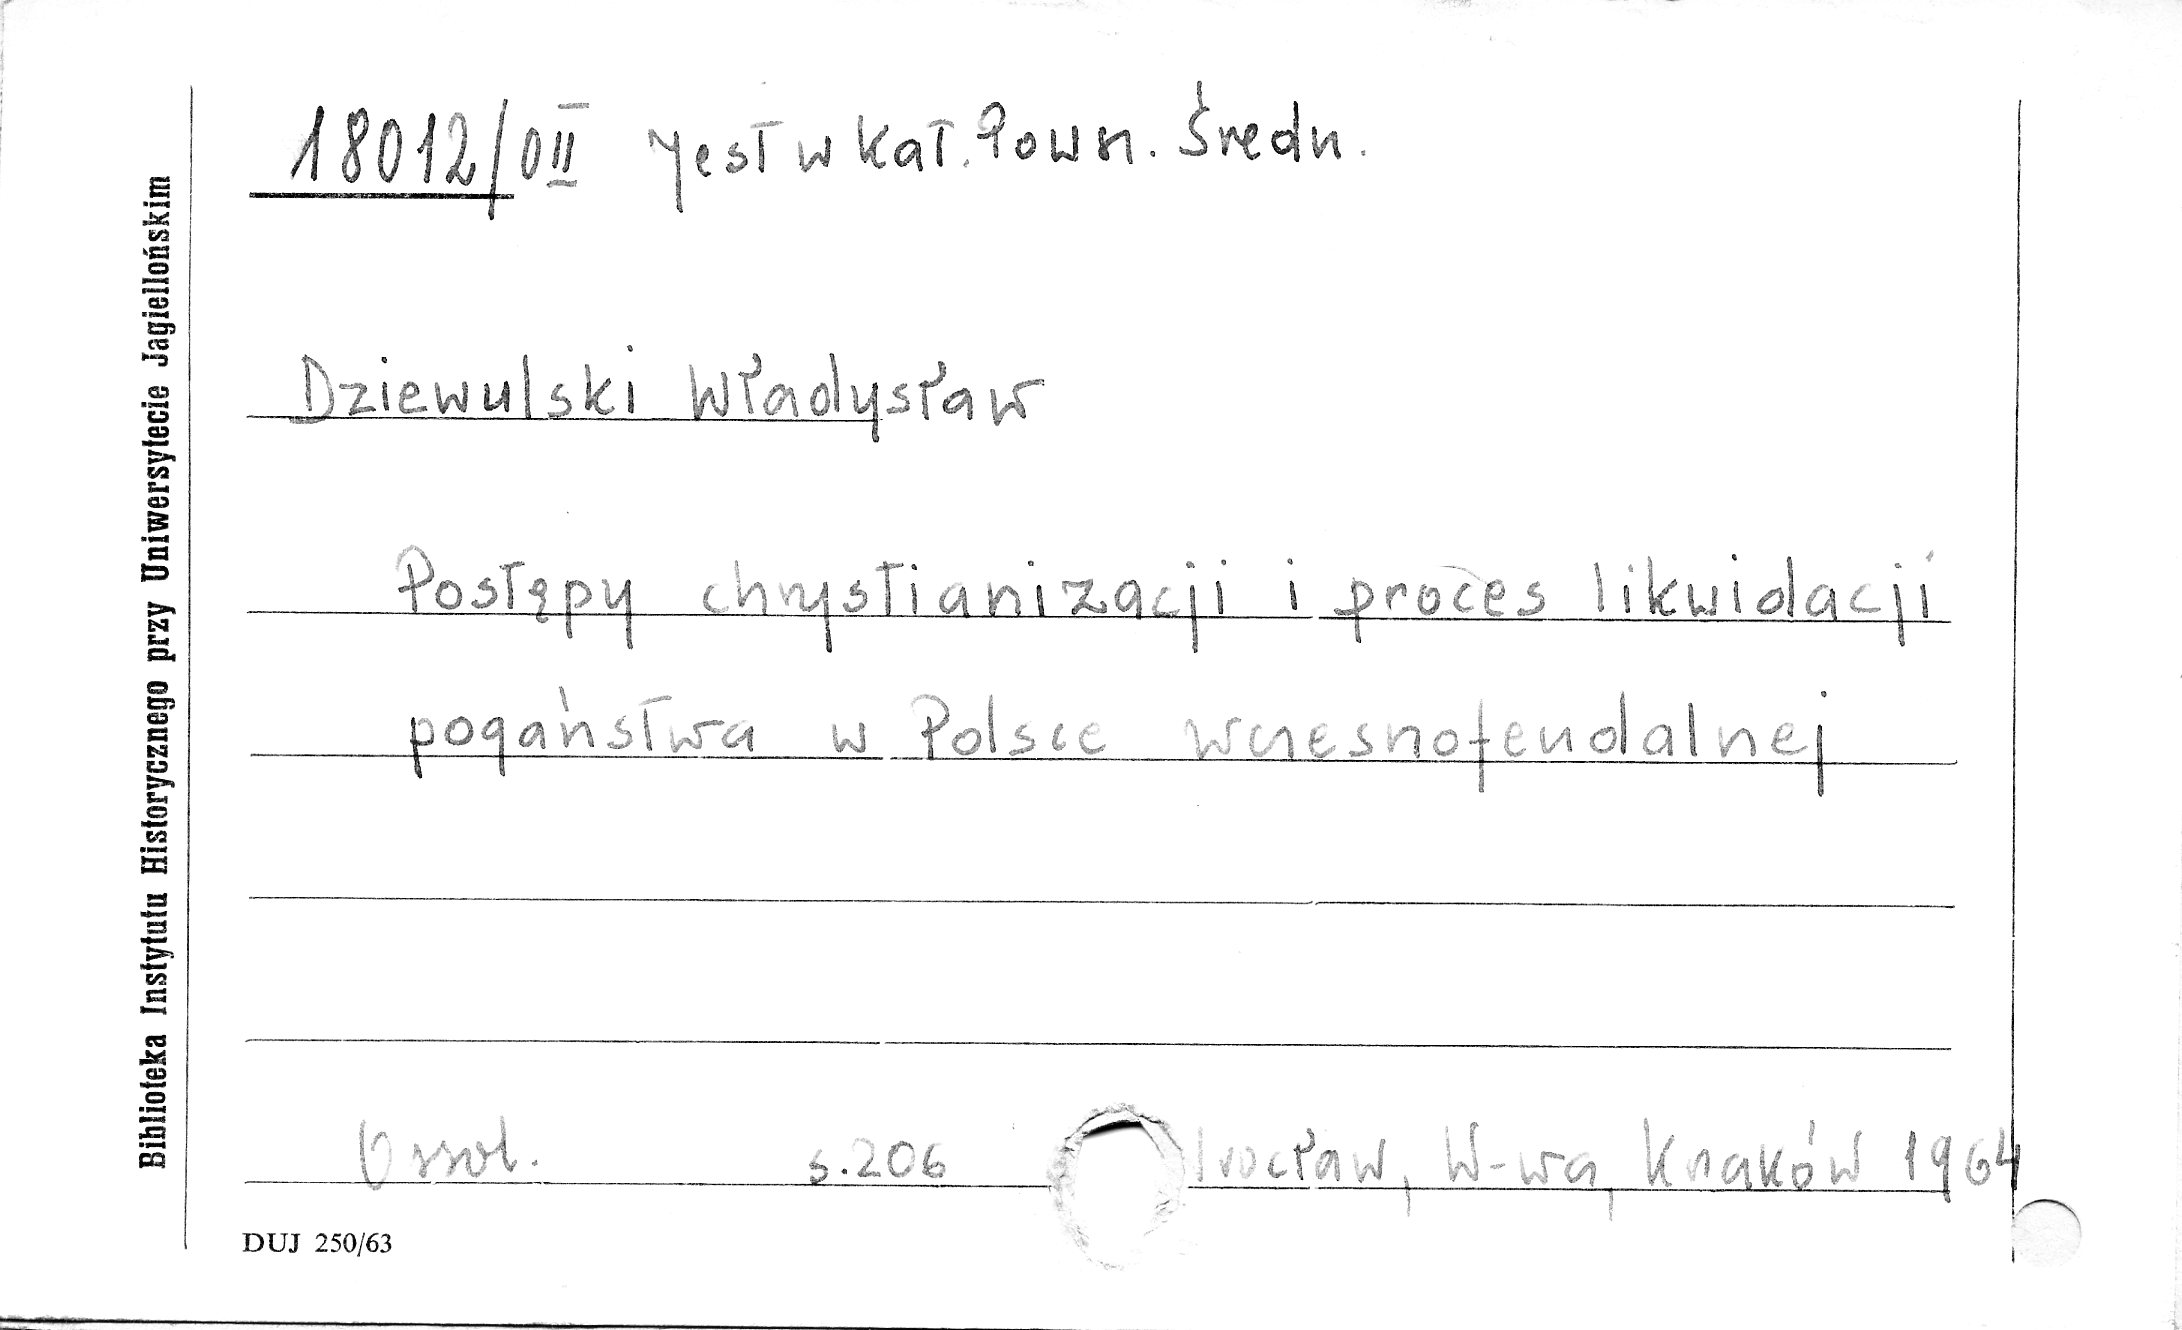 18012/OII Jest w Kat. Pown. Średn.
Dziewulski Władysław
Postępy chrystianizacji i proces likwidacji
pogaństwa w Polsce wczesnofeudalnej
Ossol. s.206 rocław, W-wa, Kraków 1964
DUJ 250/63
Biblioteka Instytutu Historycznego przy Uniwersytecie Jagiellońskim